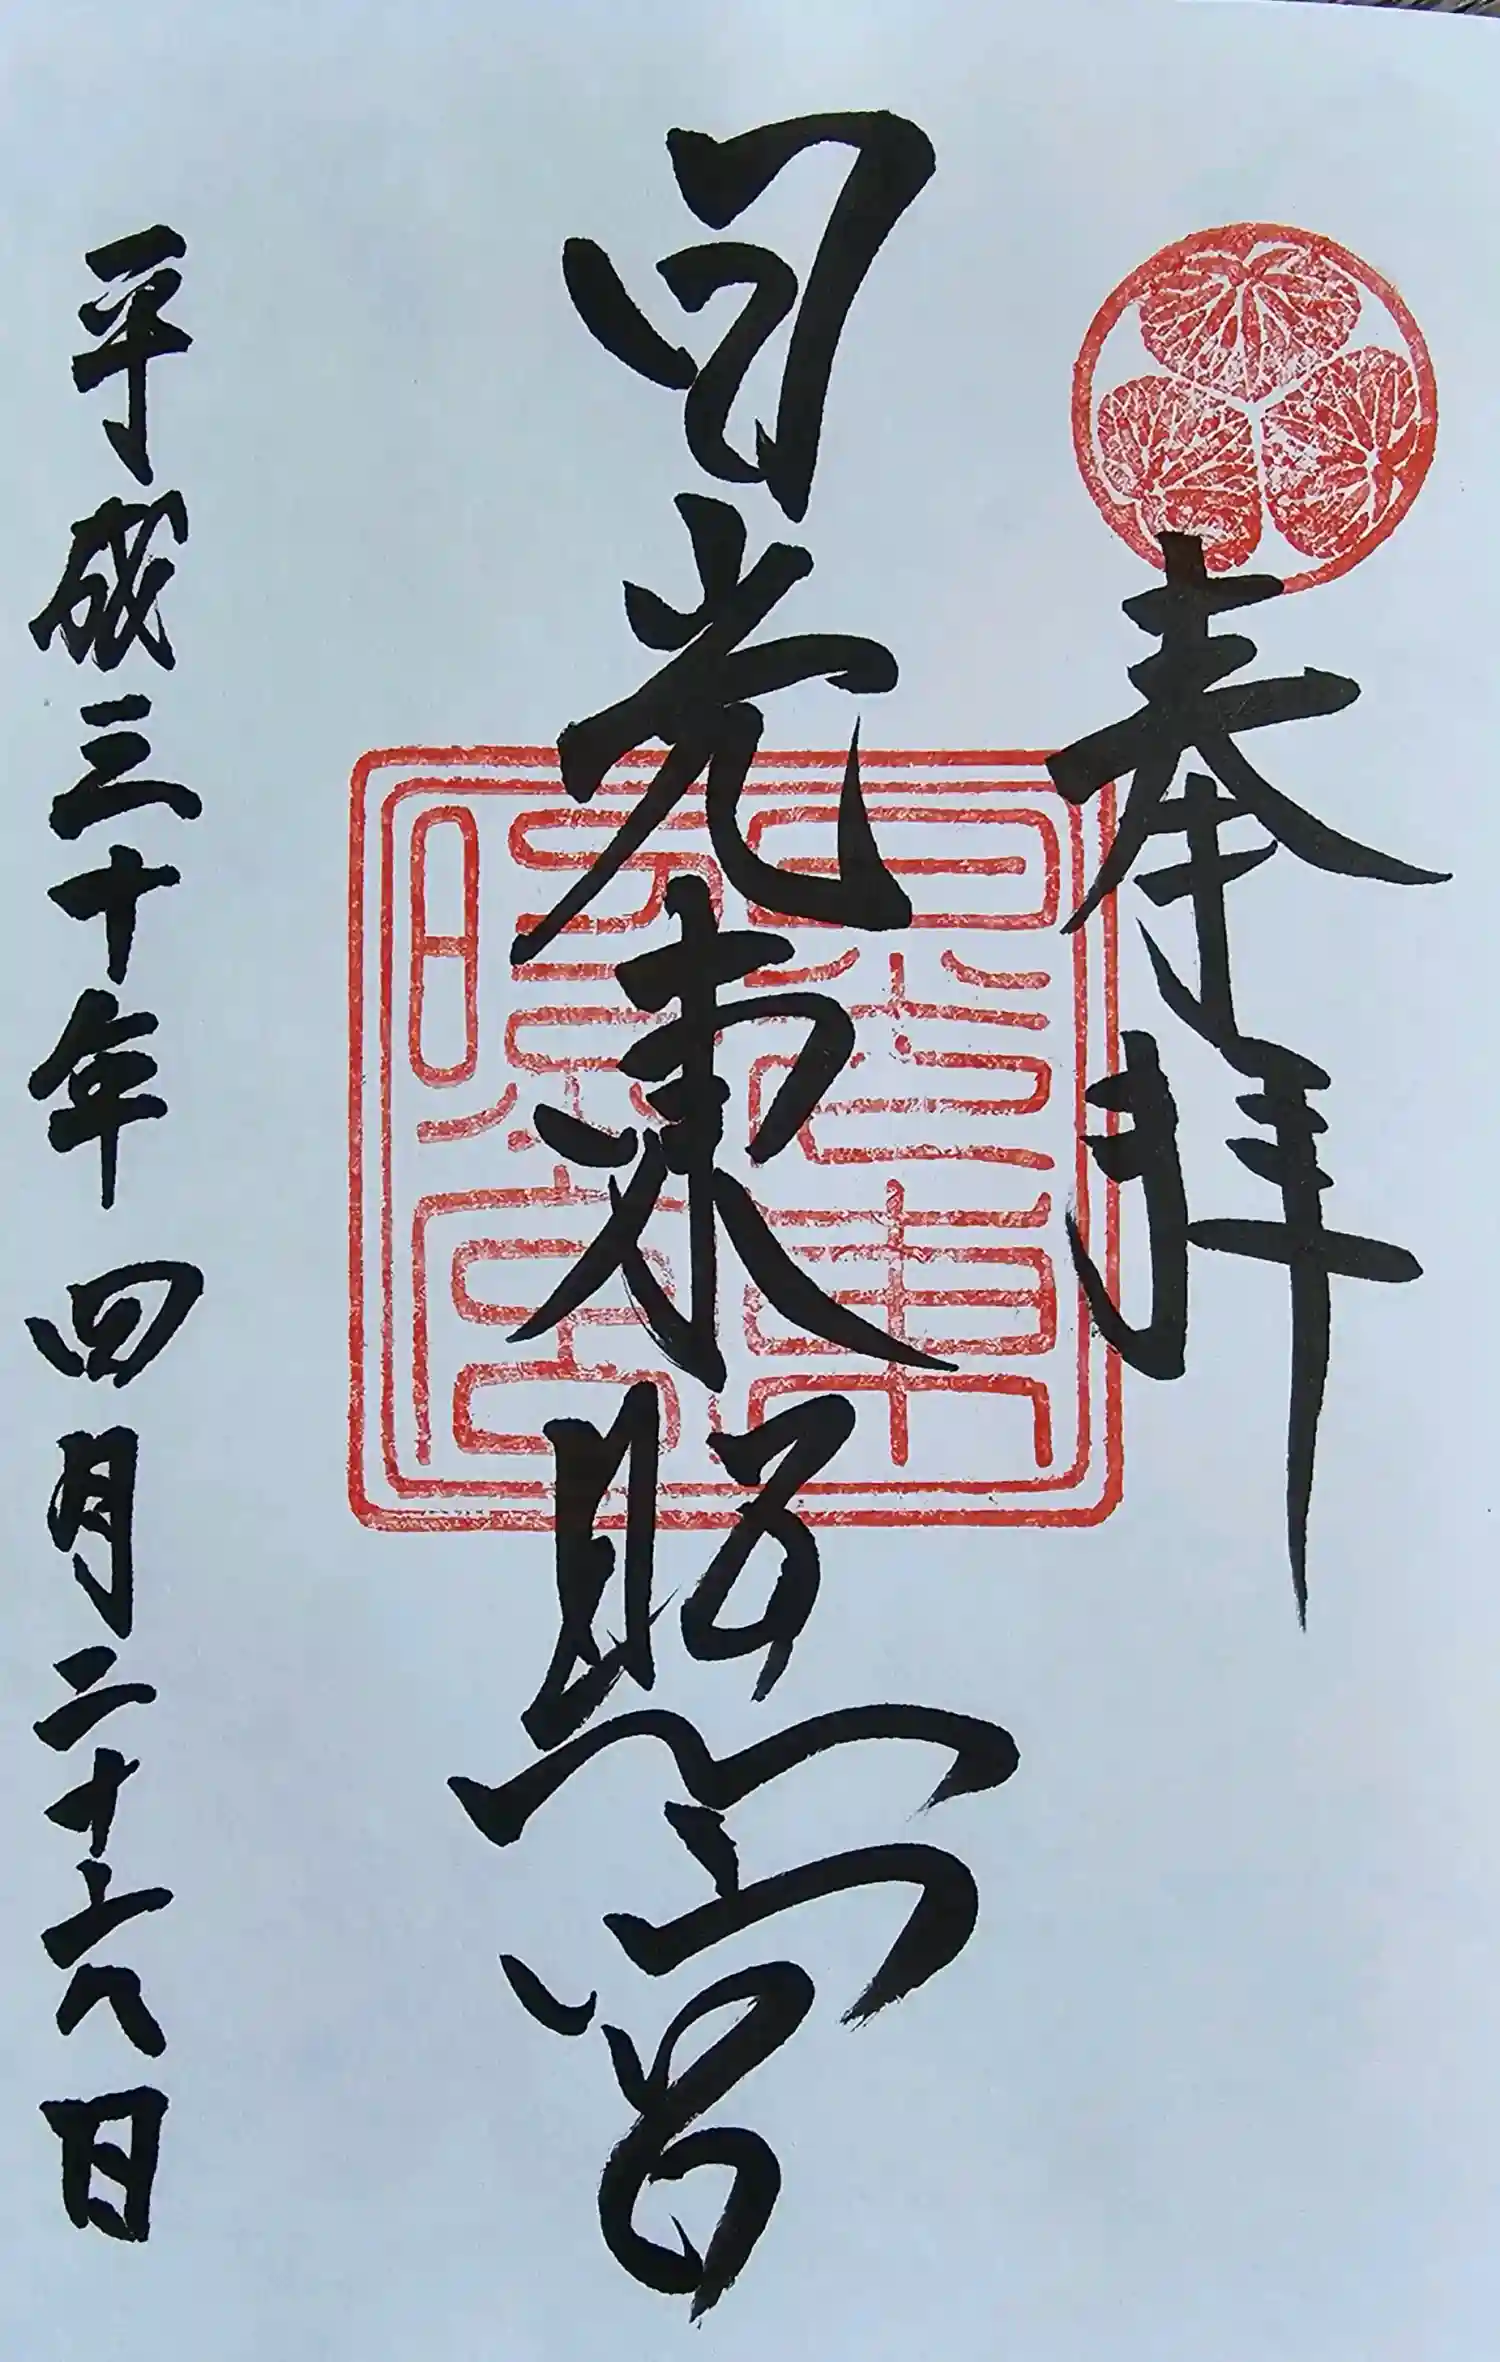 奉拝
日光東照宮
日光東照宮
平成三十年四月二十六日